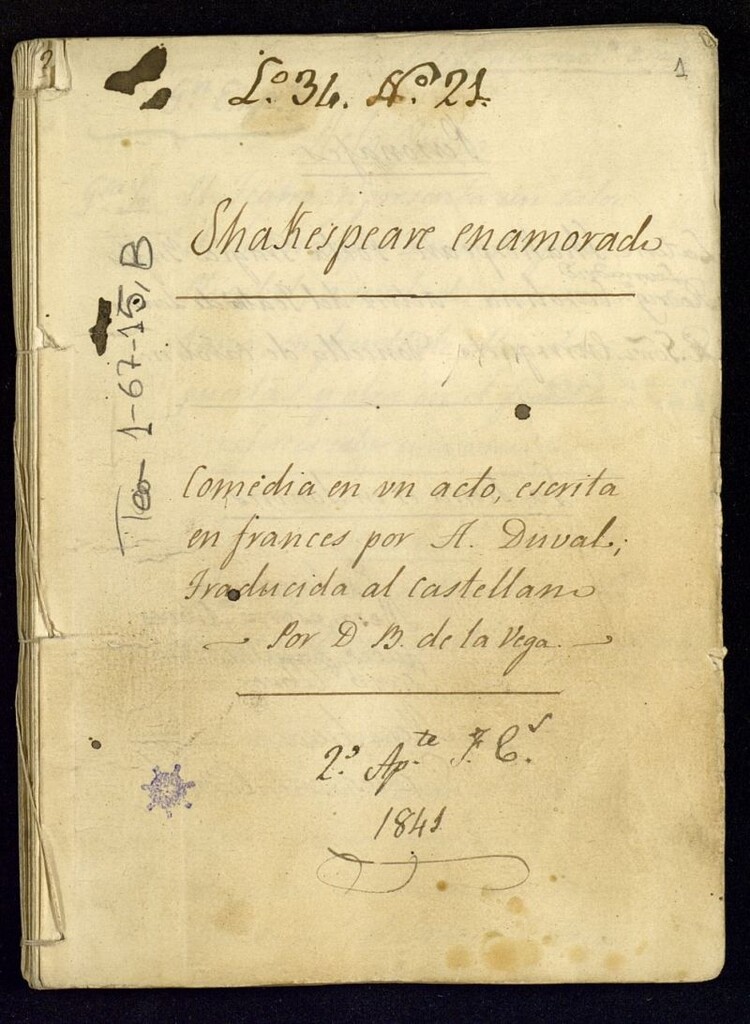 1
L.º 34. N.º 21.
Shakespeare enamorado
Teo 1-67-15, B
Comedia en un acto, escrita
en frances por A. Duval;
traducida al castellano
Por D B. de la Vega.
2.º Ap.te
1841